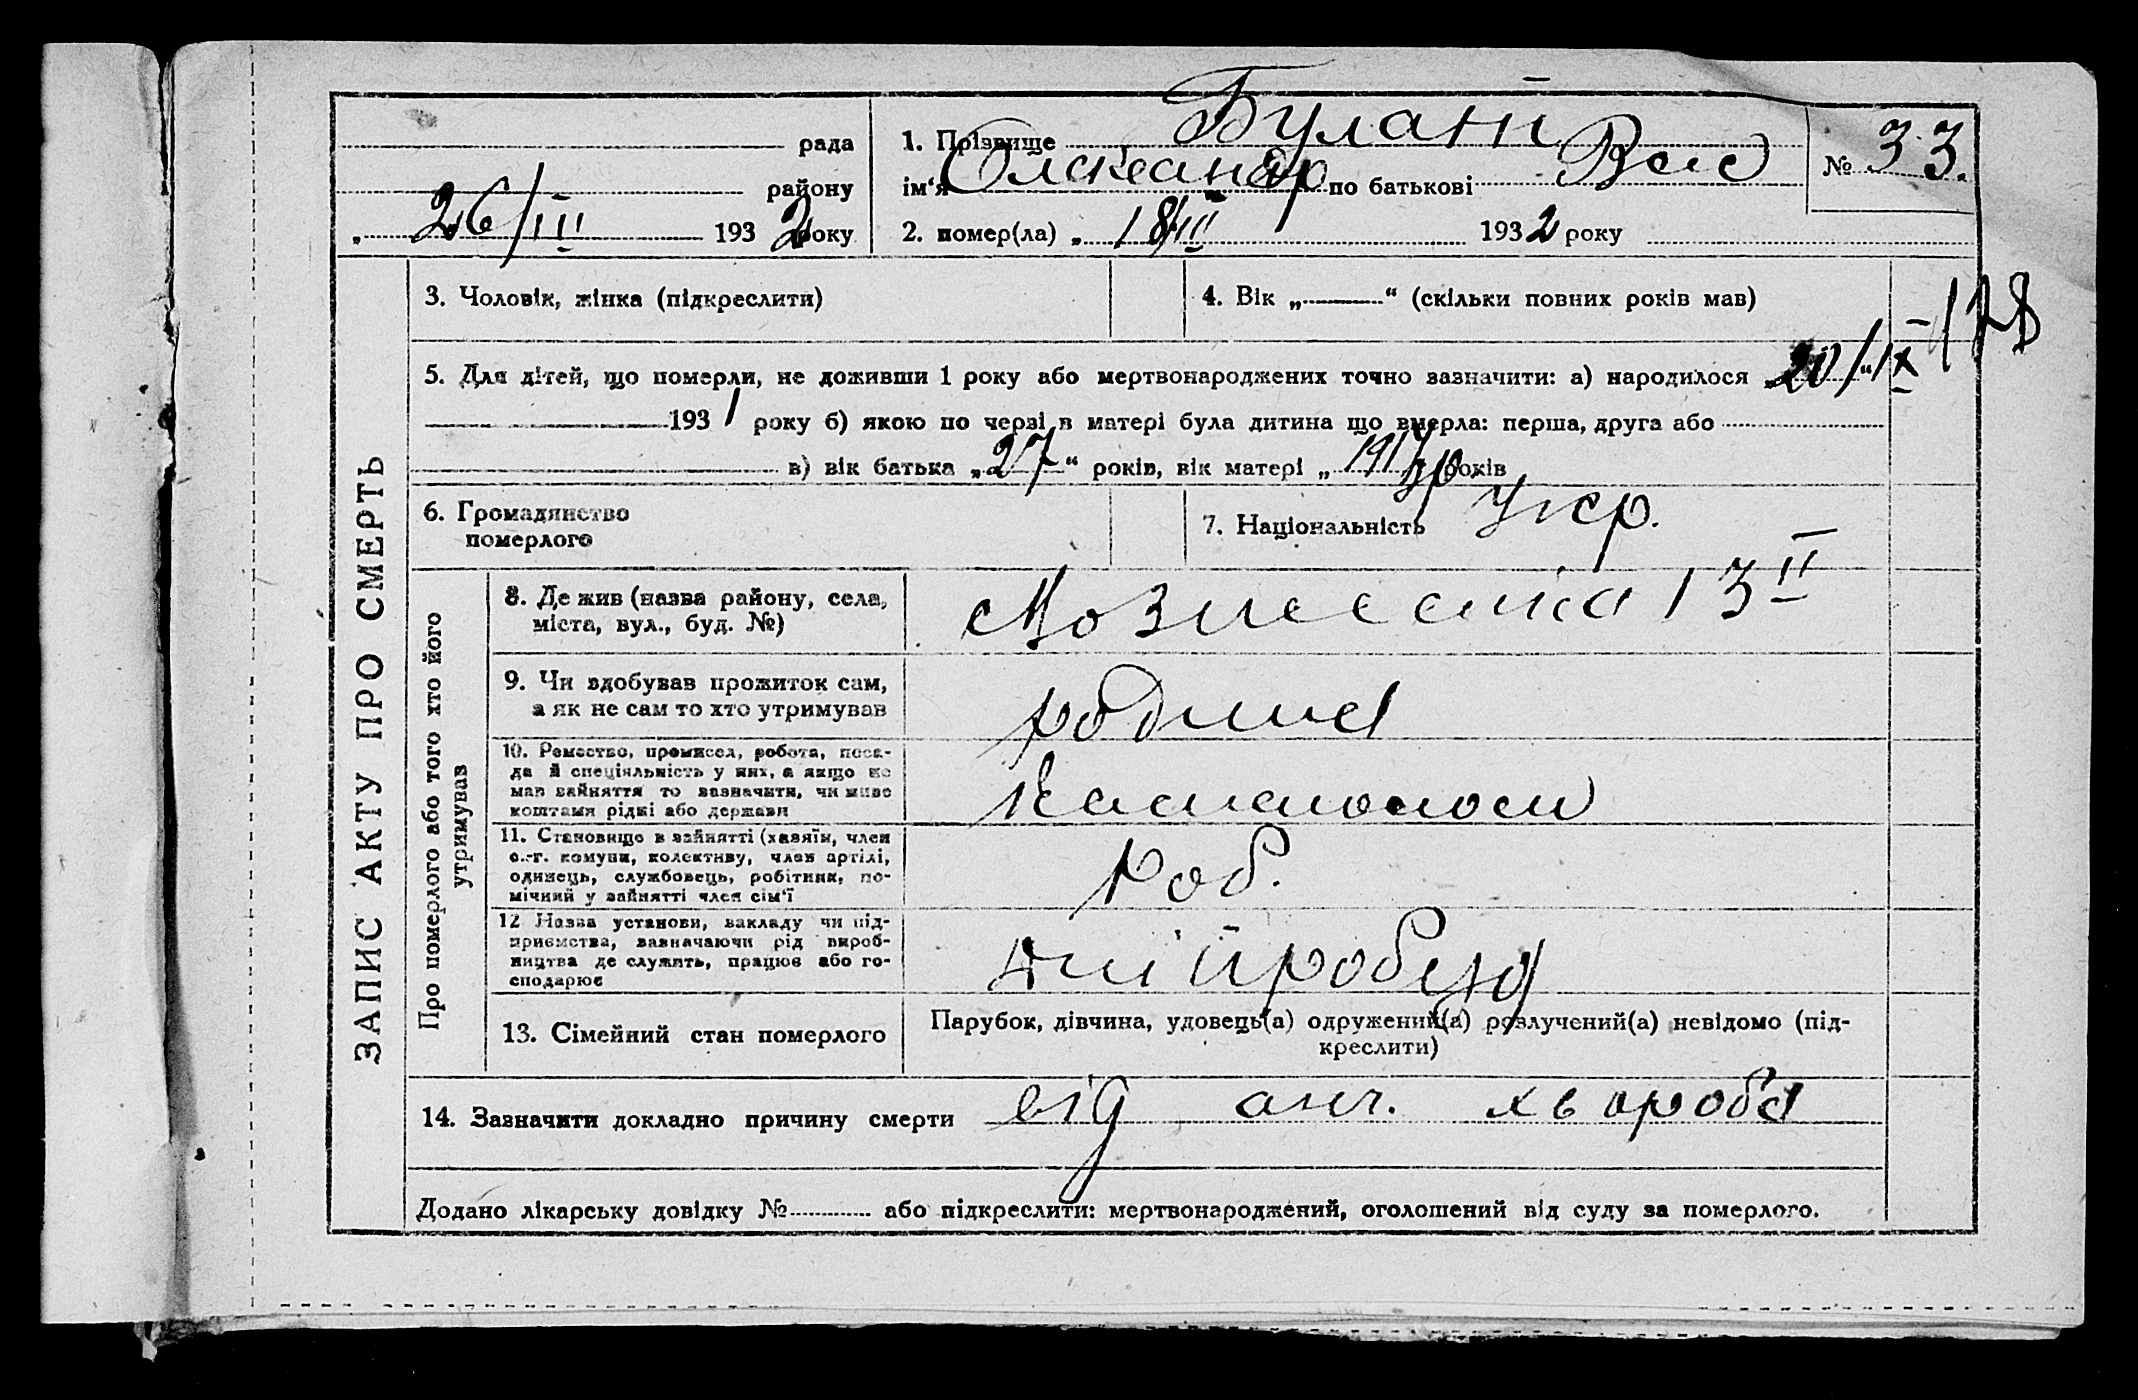 рада
району
„ 26/III 1932 року
1. Прізвище Булат
ім‘я Олександр по батькові Вас
№ 33.
2. помер(ла) „ 18/III 1932 року
3. Чоловік, жінка (підкреслити)
4. Вік „ “ (скільки повних років мав)
178
5. Для дітей, що померли, не доживши 1 року або мертвонароджених точно зазначити: а) народилося „20/“IX
1931 року б) якою по черзі в матері була дитина що вмерла: перша, друга або
в) вік батька „27“ років, вік матері „ років
6. Громадянство
померлого
7. Національність Укр.
ЗАПИС АКТУ ПРО СМЕРТЬ
Про померлого або того хто його
утримував
8. Де жив (назва району, села,
міста, вул., буд. №)
13 II
9. Чи здобував прожиток сам,
а як не сам то хто утримував
родина
10. Ремество, промисел, робота, поса-
да й спеціяльність у них, а якщо не
мав зайняття то зазначити, чи живе
коштами рідні або держави
11. Становище в зайнятті (хазяїн, член
с.-г. комуни, колективу, член артілі,
одинець, службовець, робітник, по-
мічний у зайнятті член сім‘ї
Роб.
12 Назва установи, закладу чи під-
приємства, зазначаючи рід вироб-
ництва де служить, працює або го-
сподарює
Дніпробуд
13. Сімейний стан померлого
Парубок, дівчина, удовець(а) одружений(а) розлучений(а) невідомо (під-
креслити)
14. Зазначити докладно причину смерти від хвороба
Додано лікарську довідку № або підкреслити: мертвонароджений, оголошений від суду за померлого.